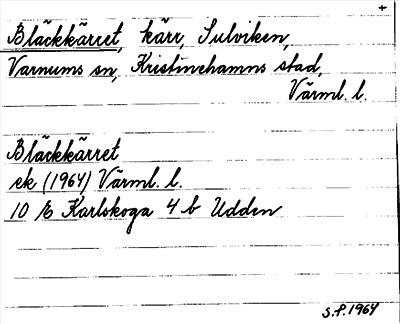 +
Bläckkärret, kärr, Sulviken,
Varnums sn, Kristinehamns stad,
Värml. l.
Bläckkärret
ek (1964) Värml. l.
10 E Karlskoga 4 b Udden
S.P. 1964